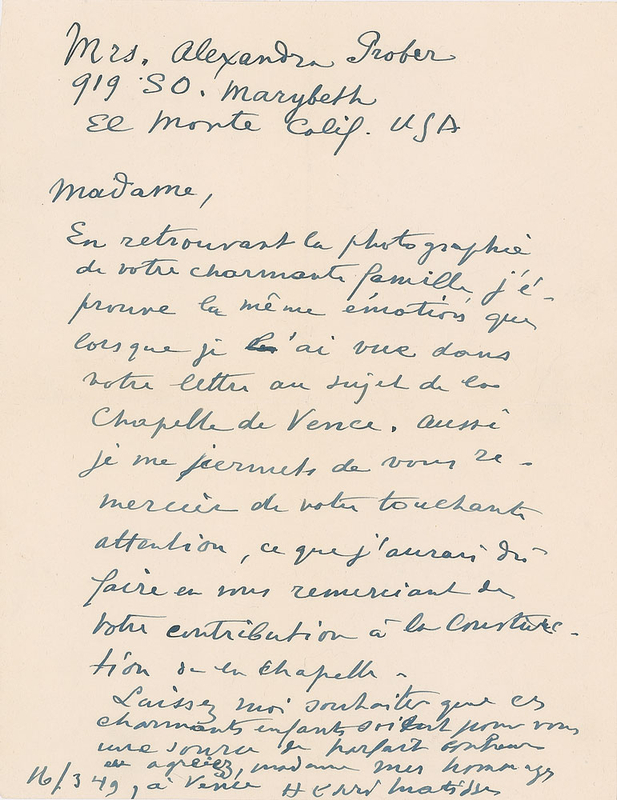 Mrs. Alexandra Prober
919 SO. Marybeth
El Monte Calif. USA
Madame,
En retrouvant la photographie
de votre charmante famille j'é-
prouve la même émotion que
lorsque je l'ai vue dans
votre lettre au sujet de la
Chapelle de Vence. Aussi
je me permets de vous re-
mercier de votre touchante
attention, ce que j'aurais dû
faire en vous remerciant de
votre contribution à la construc-
tion de la chapelle.
Laissez moi souhaiter que ces
charmants enfants soient pour vous
une source de parfait bonheur
et agréez, madame mes hommages
16/3 49, à Vence Henri Matisse